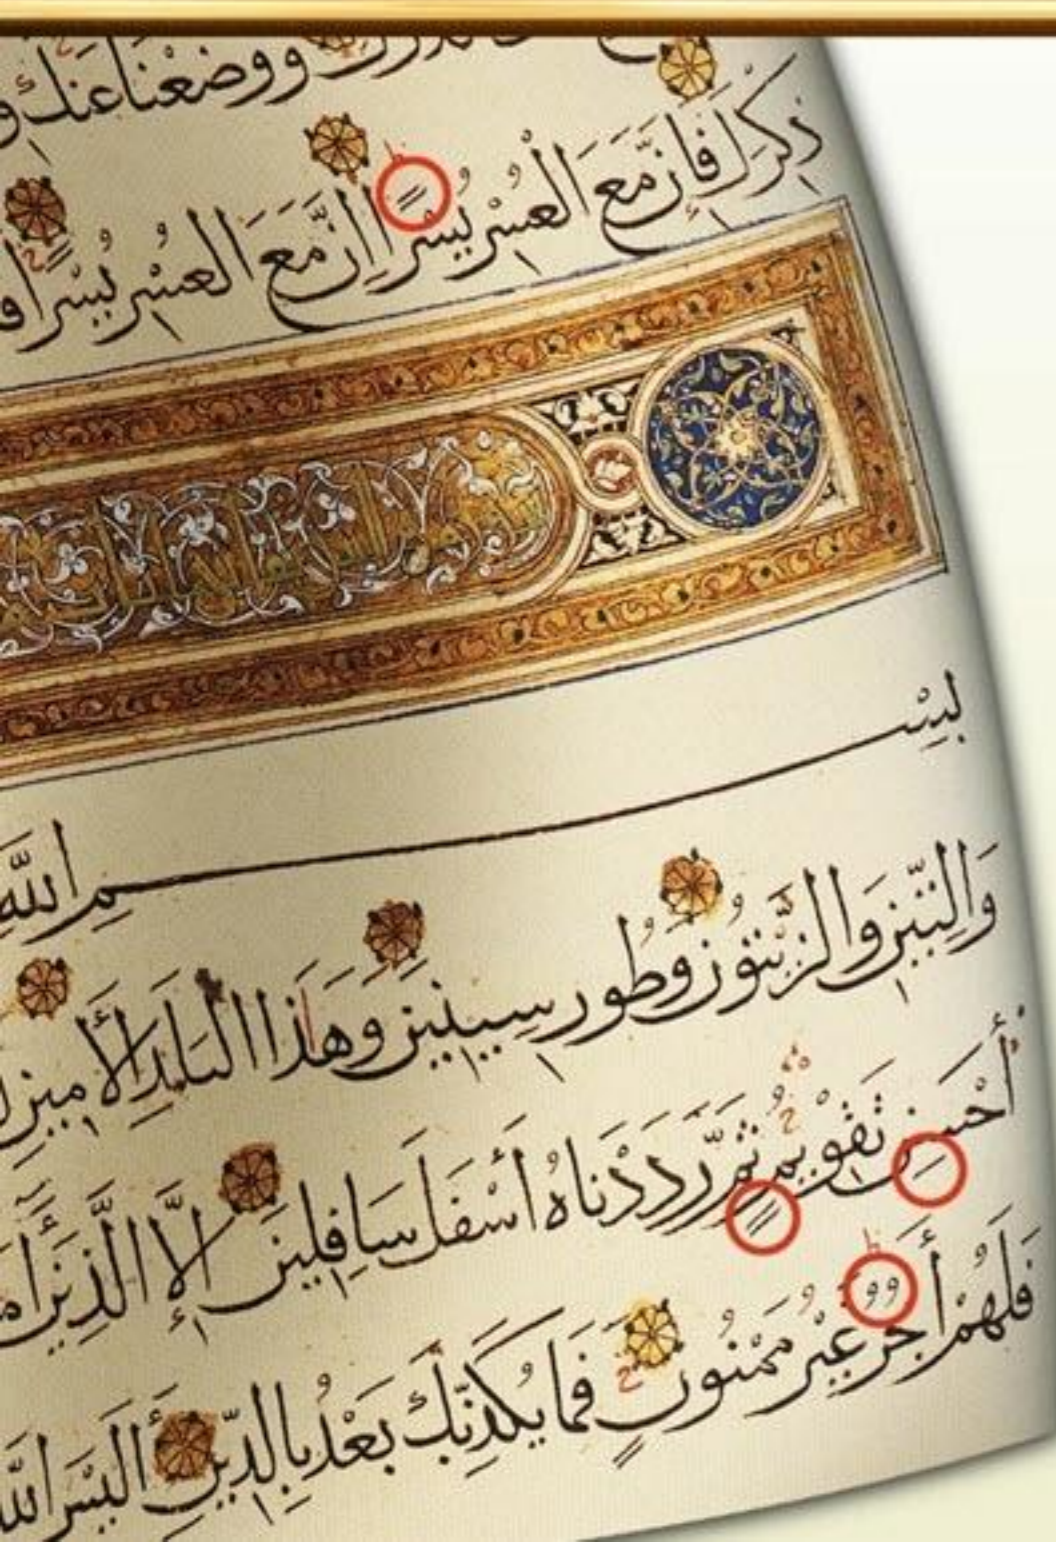 ووضعنا عنك
ذكرك فإن مع العسر يسرًا إنّ مع العسر يسرًا
بسم الله
والتين والزيتون وطور سينين وهذا البلد الأمين
أحسن تقويمٍ ثمّ رددناه أسفل سافلين إلّا الّذين
فلهم أجرٌ غير ممنونٍ فما يكذّبك بعد بالدّين أليس الله